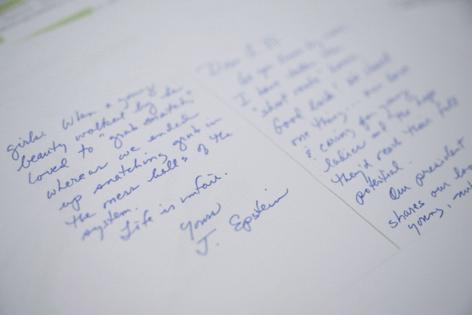 girls. When a young
beauty walked by he
loved to "grab snatch"
whereas we ended
up snatching grub in
the mess halls of the
system.
Life is unfair.
Yours
J. Epstein
Dear
As you know by now,
I have taken the
"short route" home.
Good luck! We shared
one thing ... our love
& caring for young
ladies and the hope
they'd reach their full
potential.
Our president
shares our
young,